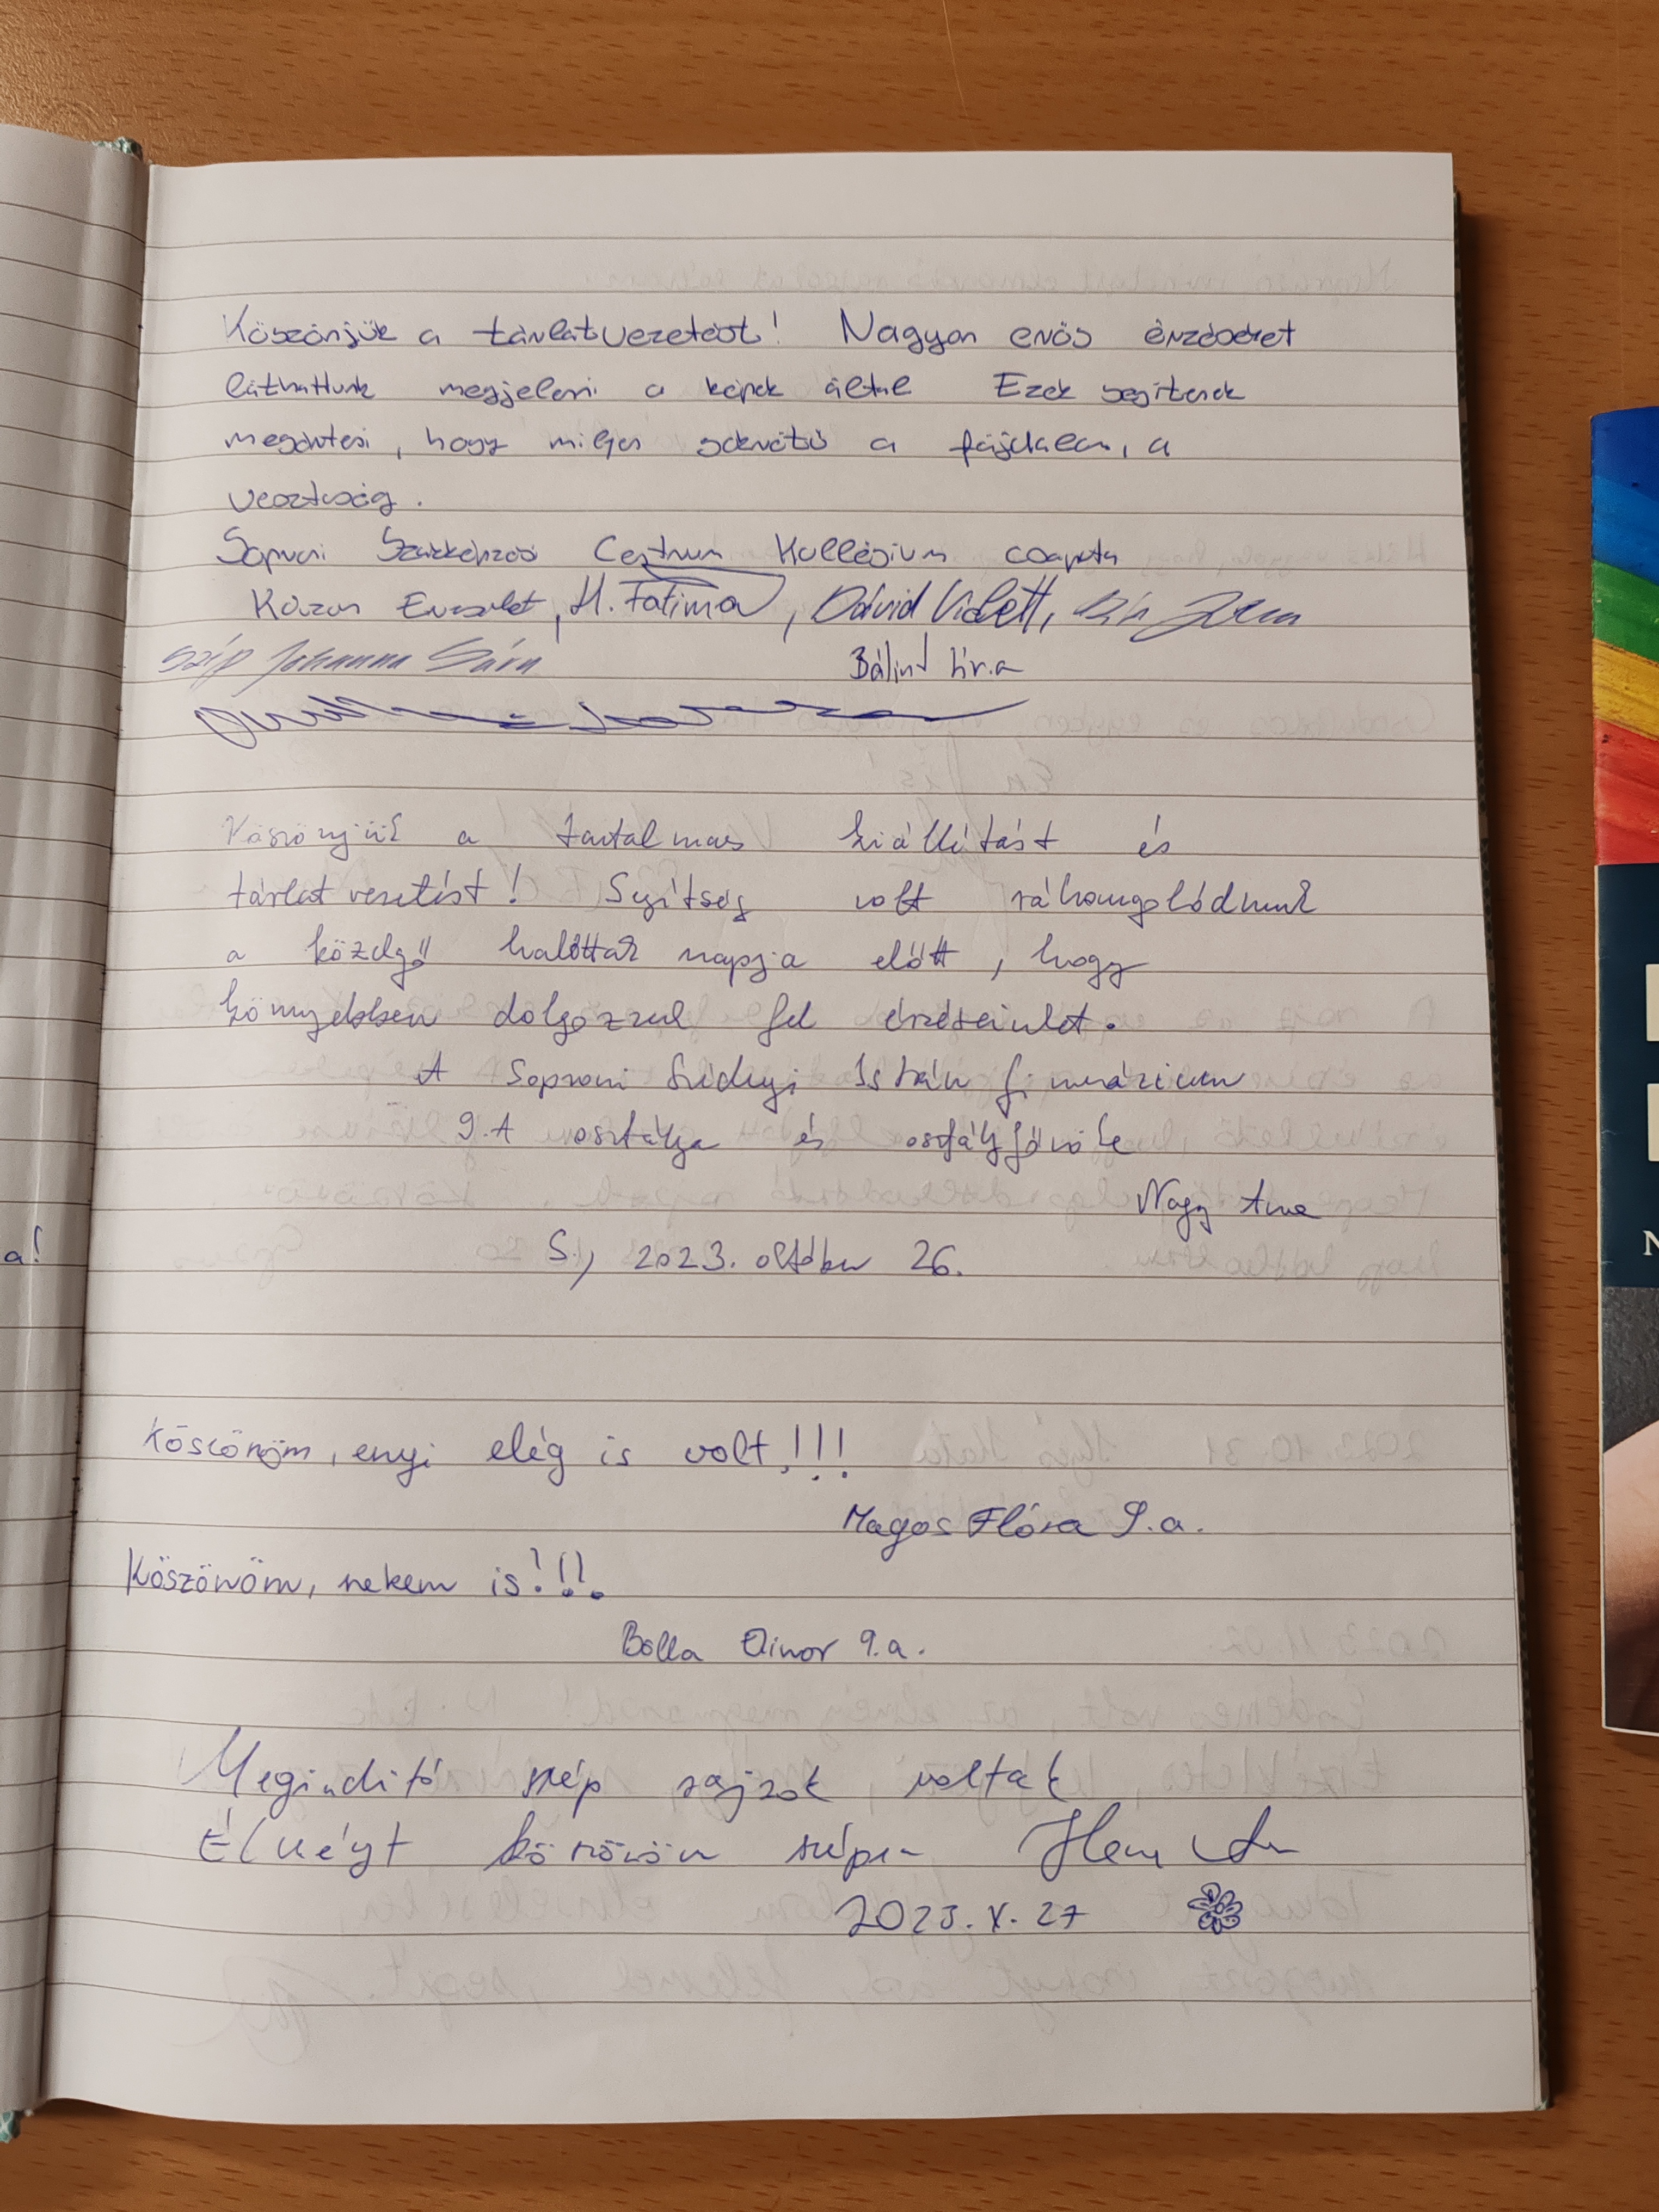 Köszönjük a tárlatvezetést! Nagyon erős érzéseket
láthattunk megjeleni a képek által Ezek segítenek
megérteni, hogy milyen sokrétű a fájdalom, a
veszteség.
Soproni Szakképzési Centrum Kollégium csapata
H. Fatima, Dávid Violett,
Szép Johanna Sára Bálint Lívia
Köszönjük a tartalmas kiállítást és
tárlatvezetést! Segítség volt ráhangolódnunk
a közelgő halottak napja előtt, hogy
könnyebben dolgozzuk fel érzéseinket.
A Soproni Széchenyi István Gimnázium
9.A osztálya és osztályfőnöke
Nagy Anna
S., 2023. október 26.
a!
Köszönöm, enyi elég is volt,!!!
Magos Flóra 9.a.
Köszönöm, nekem is!!!
Bolla Ainor 9.a.
Megindító szép rajzok voltak
Élményt köszönöm szépen
2023. X. 27